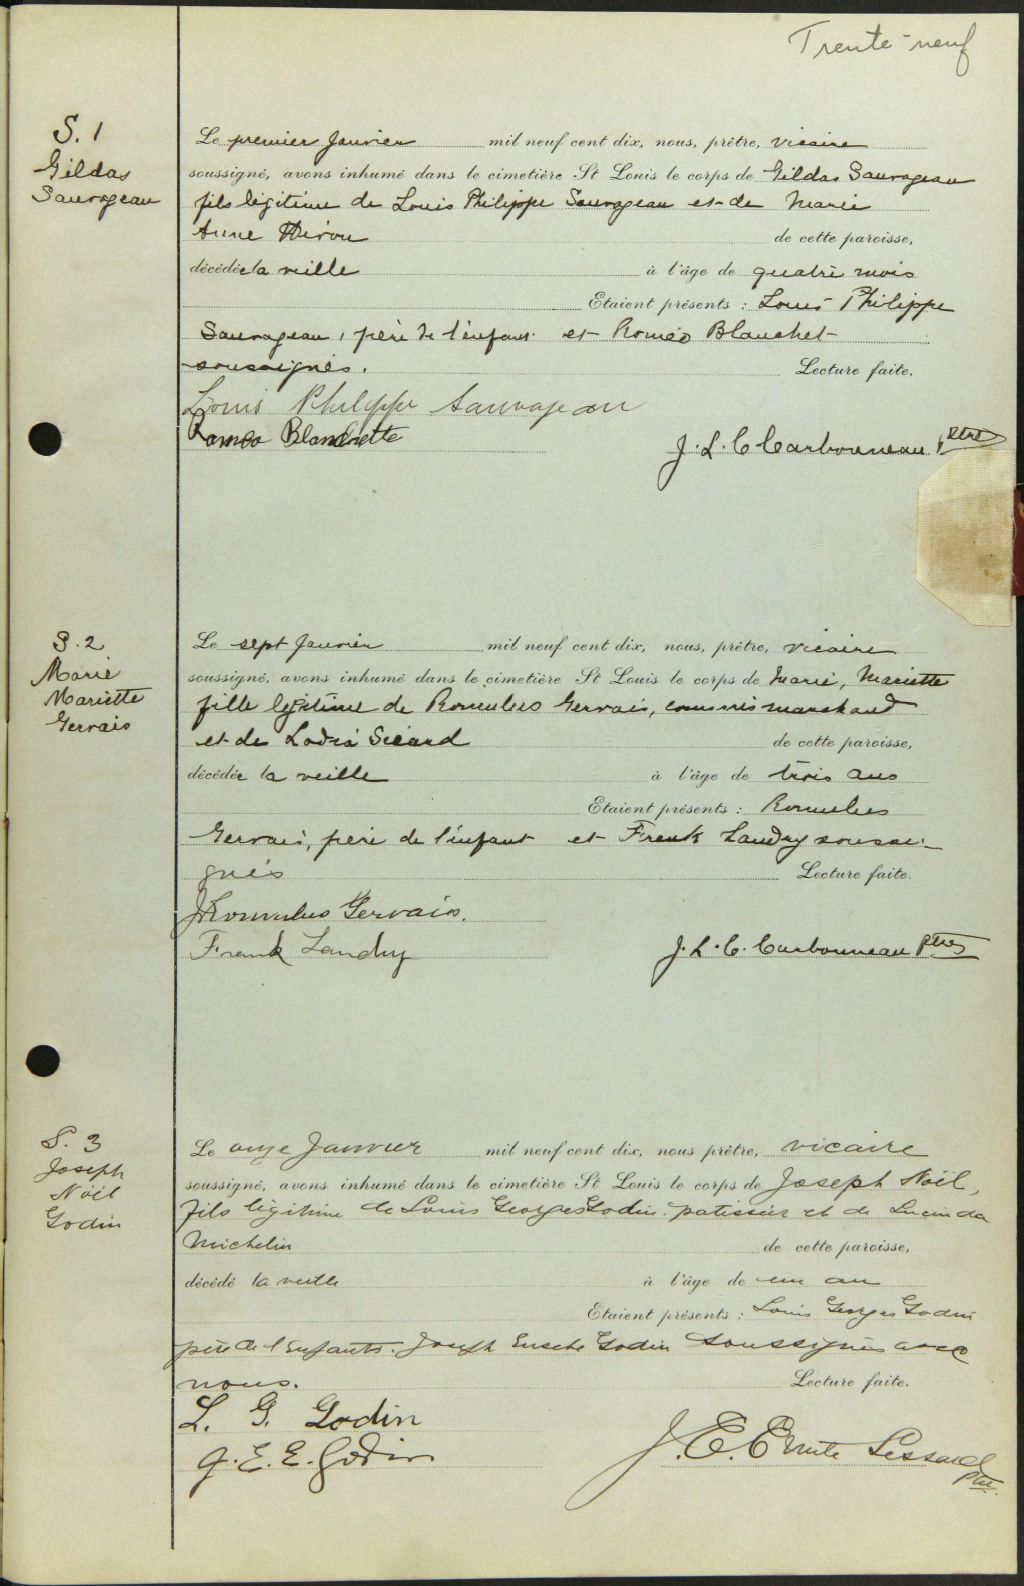 Trente-neuf
S. 1
Gildas
Sauvageau
Le premier Janvier mil neuf cent dix, nous, prêtre, vicaire
soussigné, avons inhumé dans le cimetière St Louis le corps de Gildas Sauvageau
fils légitime de Louis Philippe Sauvageau et de Marie
Anne de cette paroisse,
décédé la veille à l'âge de quatre mois
Etaient présents : Louis Philippe
Sauvageau, père de l'enfant et Roméo Blanchet
soussignés. Lecture faite.
Louis Philippe Sauvageau
Romeo Blanchette
J. L. C Carbonneau ptre
S. 2
Marie
Mariette
Gervais
Le sept Janvier mil neuf cent dix, nous, prêtre, vicaire
soussigné, avons inhumé dans le cimetière St Louis le corps de Marie, Mariette
fille légitime de Romulus Gervais, commis marchand
et de Lodia Sicard de cette paroisse,
décédée la veille à l'âge de trois ans
Etaient présents : Romulus
Gervais, père de l'enfant et Frank Landry soussi-
gnés Lecture faite.
J. Romulus Gervais.
Frank Landry
J. L. C. Carbonneau Ptre
S. 3
Joseph
Noël
Godin
Le onze Janvier mil neuf cent dix, nous prêtre, vicaire
soussigné, avons inhumé dans le cimetière St Louis le corps de Joseph Noël,
fils légitime de Louis Georges Godin patissier et de Lucinda
Michelin de cette paroisse,
décédé la veille à l'âge de un an
Etaient présents : Louis Georges Godin
père de l'enfant. Joseph Godin soussignés avec
nous. Lecture faite.
L. G. Godin
J. E. E. Godin
J. E. Emile Lessard ptre.